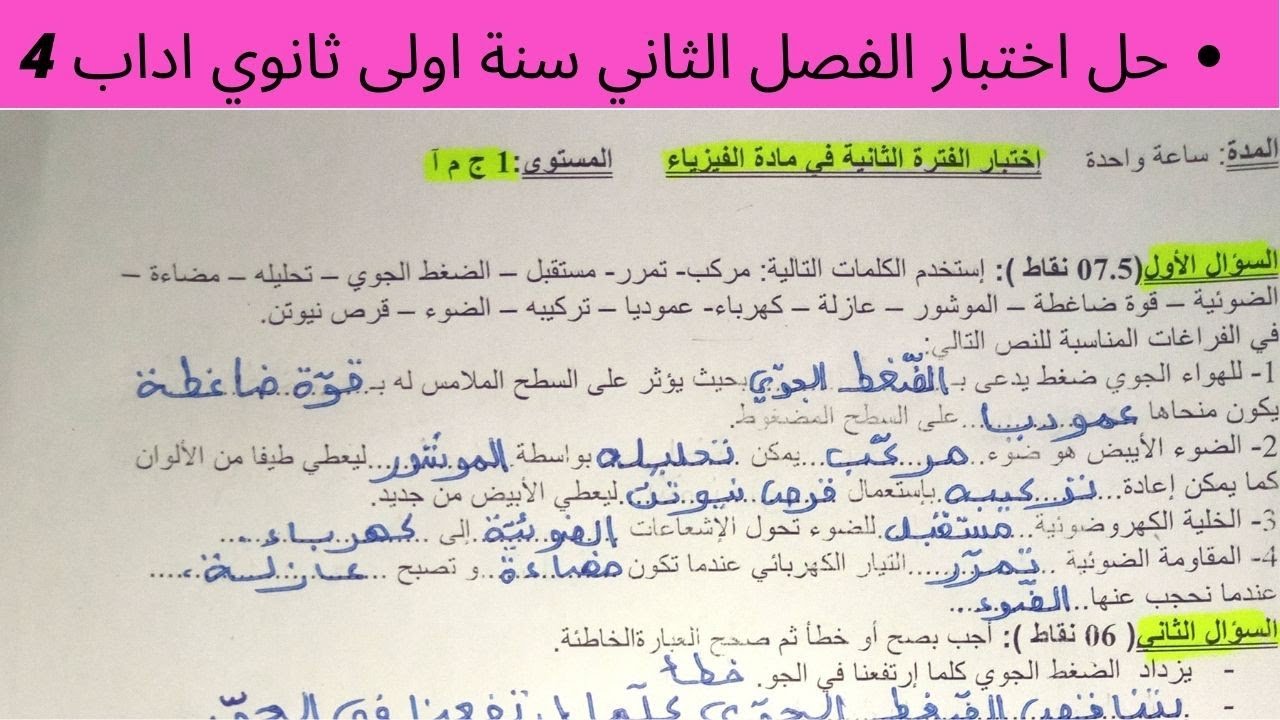 • حل اختبار الفصل الثاني سنة اولى ثانوي اداب 4
المدة: ساعة واحدة إختبار الفترة الثانية في مادة الفيزياء المستوى: 1 ج م آ
السؤال الأول(07.5 نقاط ): إستخدم الكلمات التالية: مركب- تمرر- مستقبل – الضغط الجوي – تحليله – مضاءة –
الضوئية – قوة ضاغطة – الموشور – عازلة – كهرباء- عموديا – تركيبه – الضوء – قرص نيوتن.
في الفراغات المناسبة للنص التالي:
1- للهواء الجوي ضغط يدعى بـ الضّغط الجوّي بحيث يؤثر على السطح الملامس له بـ قوّة ضاغطة
يكون منحاها عموديا... على السطح المضغوط.
2- الضوء الأبيض هو ضوء.. مركّب...يمكن .تحليله بواسطة .الموشور...ليعطي طيفا من الألوان
كما يمكن إعادة...تركيبه بإستعمال قرص نيوتن.ليعطي الأبيض من جديد.
3- الخلية الكهروضوئية...مستقبل.للضوء تحول الإشعاعات الضوئيّة.إلى ..كهرباء......
4- المقاومة الضوئية ..تمرّر.....التيار الكهربائي عندما تكون مضاءة..و تصبح ...عازلة.....
عندما نحجب عنها..الضّوء...
السؤال الثاني( 06 نقاط ): أجب بصح أو خطأ ثم صحح العبارةالخاطئة.
- يزداد الضغط الجوي كلما إرتفعنا في الجو. خطأ
- يتناقص الضّغط الجوّي كلّما ارتفعنا في الجوّ